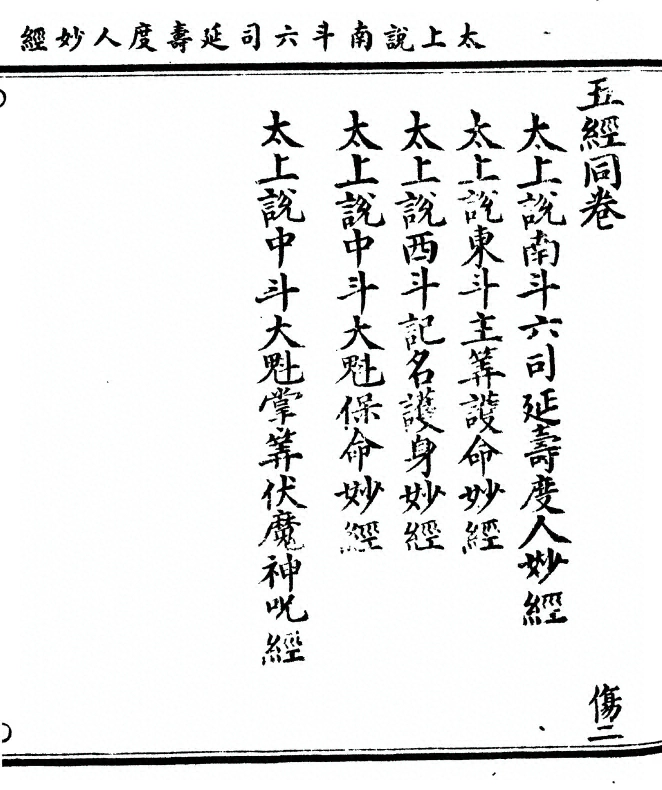 太上說南斗六司延壽度人妙經
五經同卷
傷二
太上說南斗六司延壽度人妙經
太上說東斗主筭護命妙經
太上說西斗記名護身妙經
太上說中斗大魁保命妙經
太上說中斗大魁掌筭伏魔神呪經